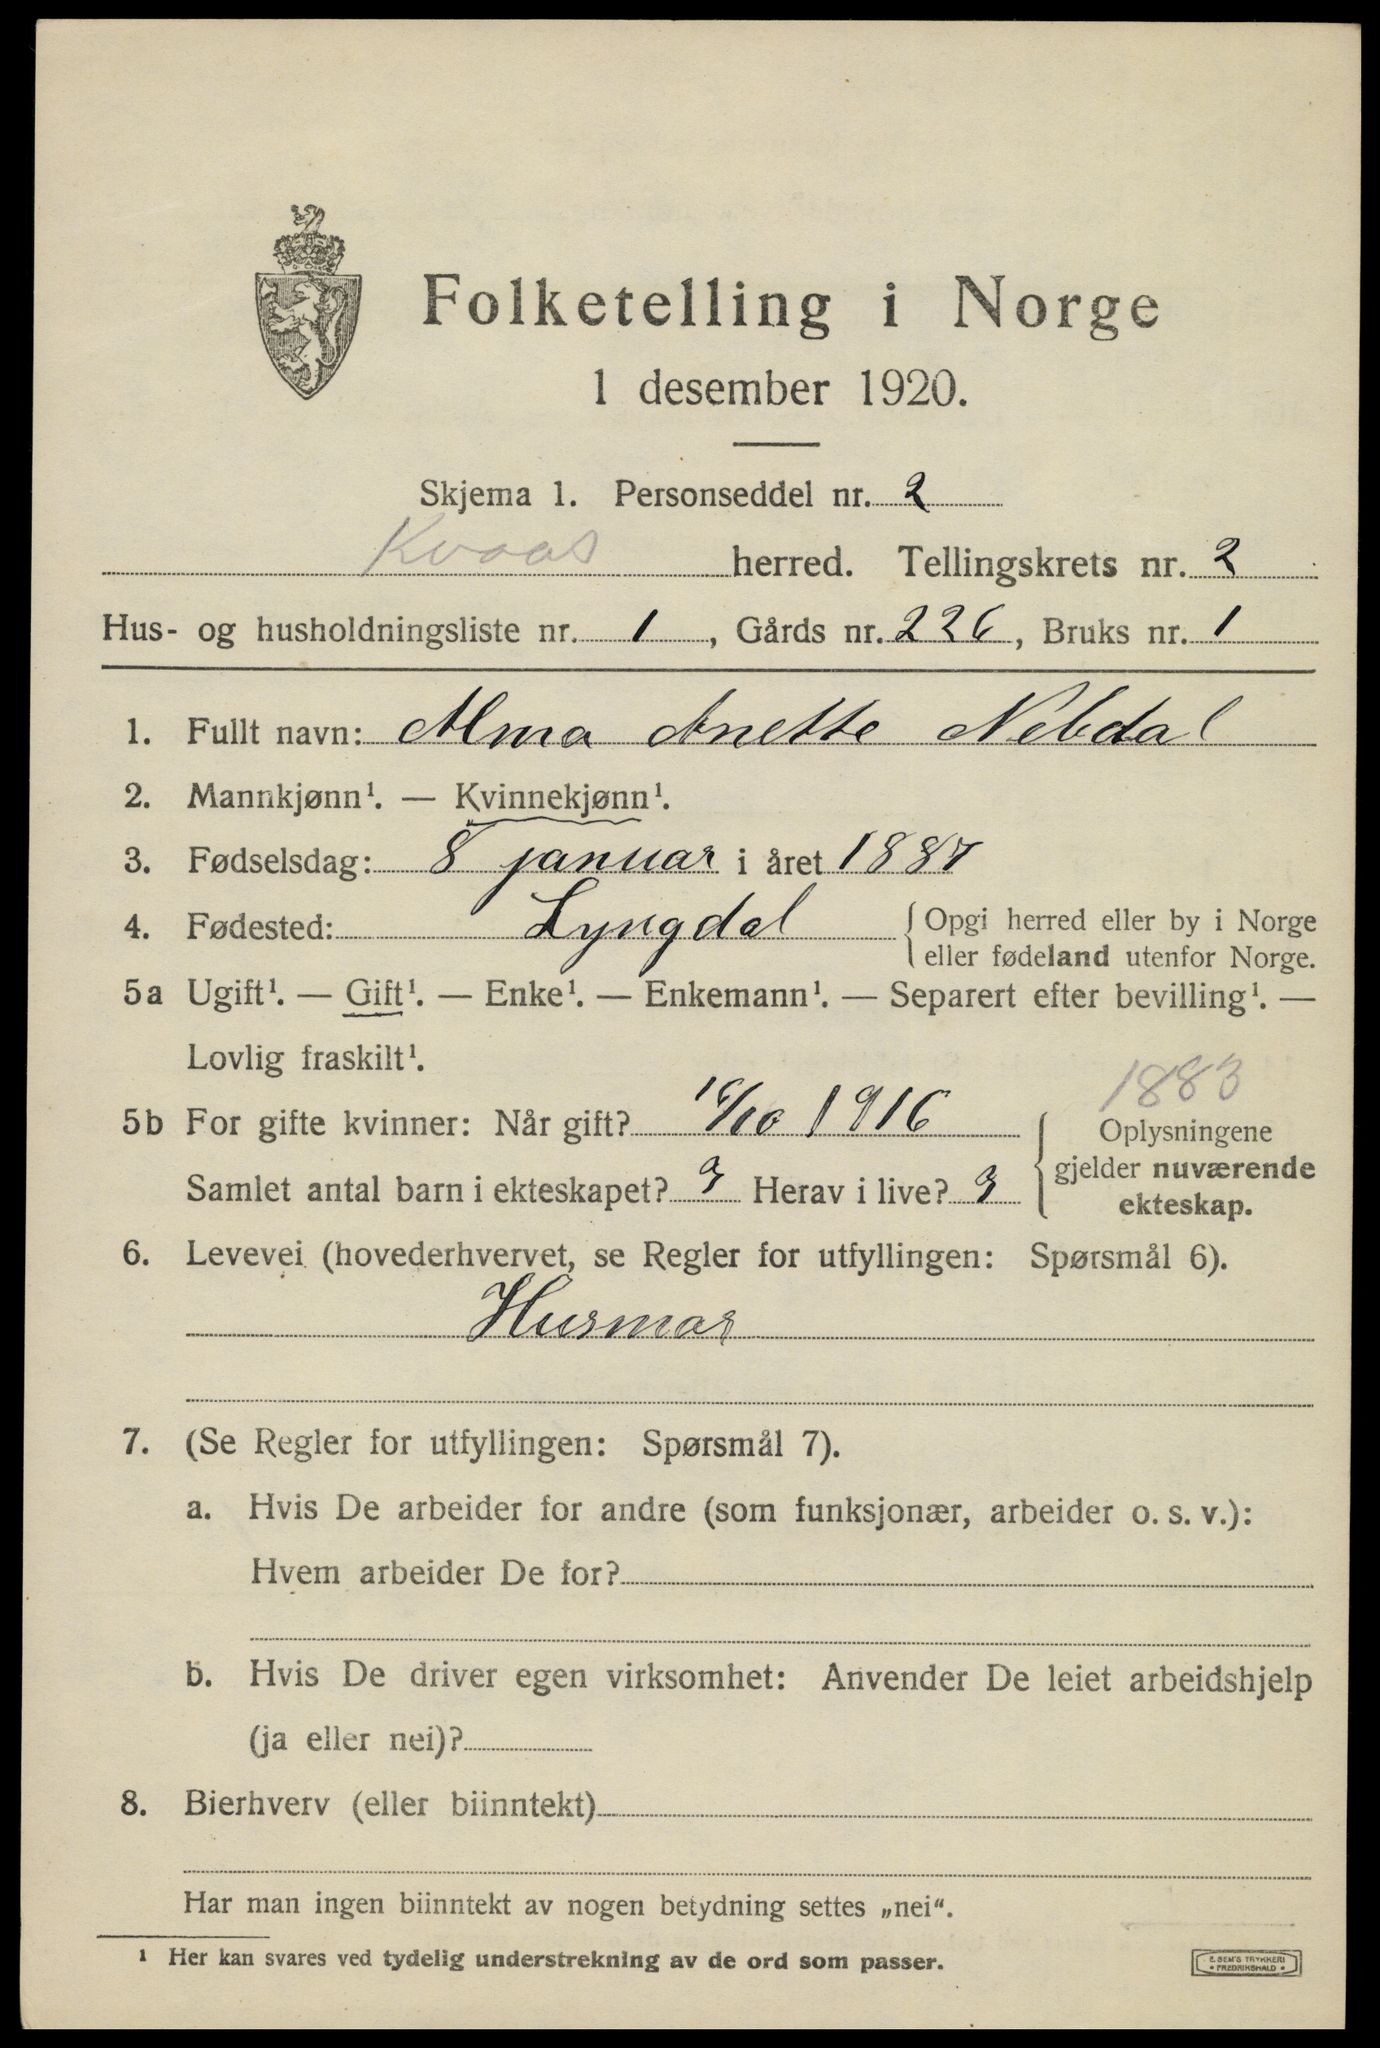 Folketelling i Norge
1 desember 1920.
Skjema 1. Personseddel nr. 2
Kvaas herred. Tellingskrets nr. 2
Hus- og husholdningsliste nr. 1, Gårds nr. 226, Bruks nr. 1
1. Fullt navn: Alma Anette Nebdal
2. Mannkjønn¹. — Kvinnekjønn¹.
3. Fødselsdag: 8 januar i året 1887
4. Fødested: Lyngdal { Opgi herred eller by i Norge
eller fødeland utenfor Norge.
5a Ugift¹. — Gift¹. — Enke¹. — Enkemann¹. — Separert efter bevilling¹. —
Lovlig fraskilt¹.
1883
5b For gifte kvinner: Når gift? 16/10 1916
Samlet antal barn i ekteskapet? 3 Herav i live? 3
{ Oplysningene
gjelder nuværende
ekteskap.
6. Levevei (hovederhvervet, se Regler for utfyllingen: Spørsmål 6).
Husmor
7. (Se Regler for utfyllingen: Spørsmål 7).
a. Hvis De arbeider for andre (som funksjonær, arbeider o. s. v.):
Hvem arbeider De for?
b. Hvis De driver egen virksomhet: Anvender De leiet arbeidshjelp
(ja eller nei)?
8. Bierhverv (eller biinntekt)
Har man ingen biinntekt av nogen betydning settes „nei“.
¹ Her kan svares ved tydelig understrekning av de ord som passer.
E. SEM'S TRYKKERI
• FREDRIKSHALD •